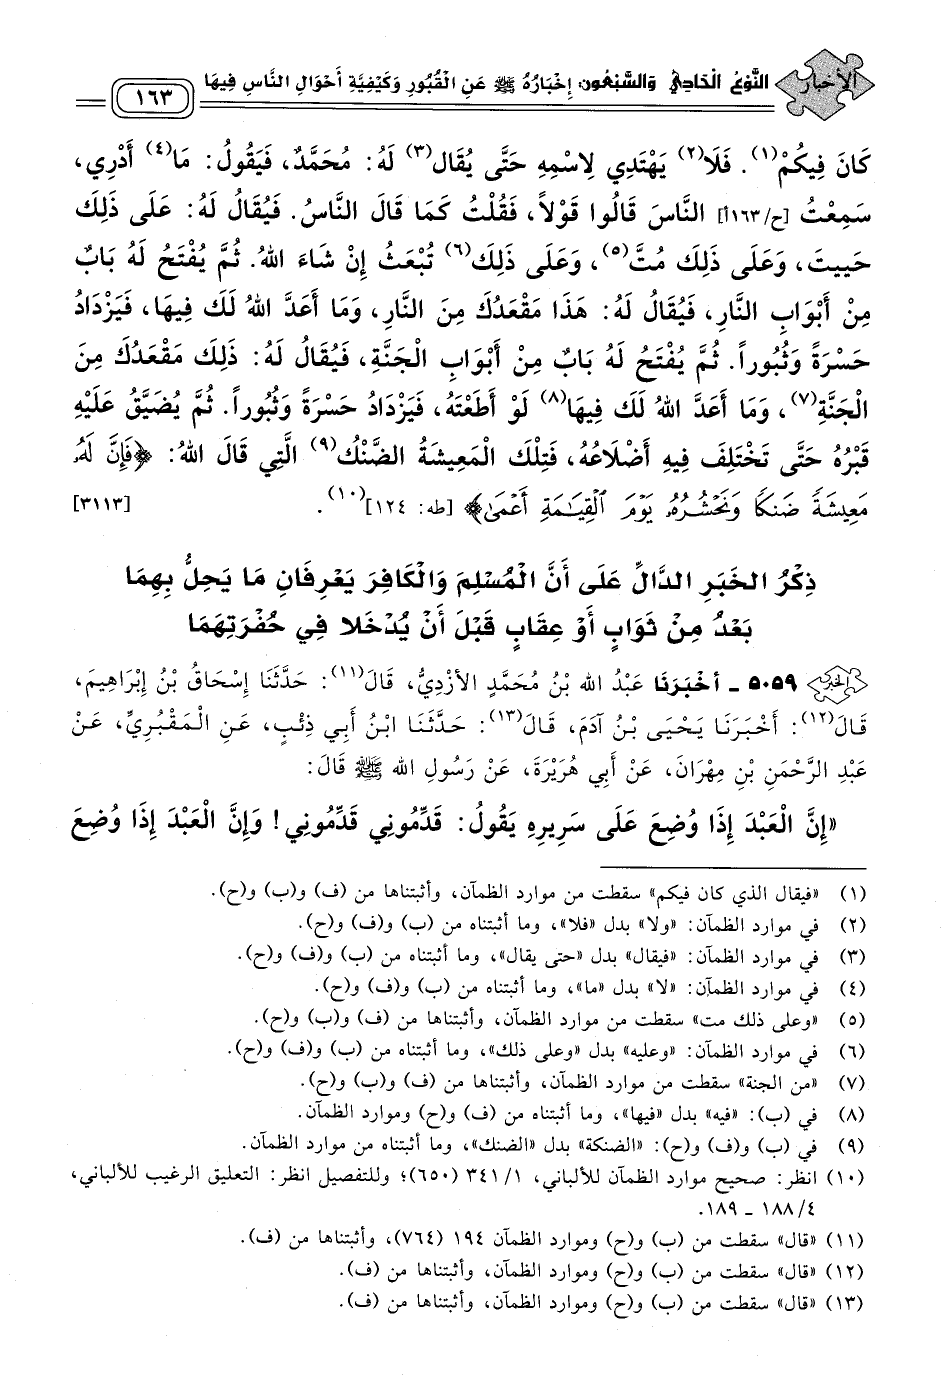 الأخبار النَّوْعُ الْحَادِي وَالسَّبْعُون: إِخْبَارُهُ ﷺ عَنِ الْقُبُورِ وَكَيْفِيَّةِ أَحْوَالِ النَّاسِ فِيهَا ١٦٣
كَانَ فِيكُمْ(١). فَلَا(٢) يَهْتَدِي لِاسْمِهِ حَتَّى يُقَال(٣) لَهُ: مُحَمَّدٌ، فَيَقُولُ: مَا(٤) أَدْرِي،
سَمِعْتُ [ح/١٦٣أ] النَّاسَ قَالُوا قَوْلاً، فَقُلْتُ كَمَا قَالَ النَّاسُ. فَيُقَالُ لَهُ: عَلَى ذَلِكَ
حَيِيتَ، وَعَلَى ذَلِكَ مُتَّ(٥)، وَعَلَى ذَلِكَ(٦) تُبْعَثُ إِنْ شَاءَ اللهُ. ثُمَّ يُفْتَحُ لَهُ بَابٌ
مِنْ أَبْوَابِ النَّارِ، فَيُقَالُ لَهُ: هَذَا مَقْعَدُكَ مِنَ النَّارِ، وَمَا أَعَدَّ اللهُ لَكَ فِيهَا، فَيَزْدَادُ
حَسْرَةً وَثُبُوراً. ثُمَّ يُفْتَحُ لَهُ بَابٌ مِنْ أَبْوَابِ الْجَنَّةِ، فَيُقَالُ لَهُ: ذَلِكَ مَقْعَدُكَ مِنَ
الْجَنَّةِ(٧)، وَمَا أَعَدَّ اللهُ لَكَ فِيهَا(٨) لَوْ أَطَعْتَهُ، فَيَزْدَادُ حَسْرَةً وَثُبُوراً. ثُمَّ يُضَيَّقُ عَلَيْهِ
قَبْرُهُ حَتَّى تَخْتَلِفَ فِيهِ أَضْلَاعُهُ، فَتِلْكَ الْمَعِيشَةُ الضَّنْكُ(٩) الَّتِي قَالَ اللهُ: ﴿فَإِنَّ لَهُۥ
مَعِيشَةً ضَنكًا وَنَحْشُرُهُۥ يَوْمَ ٱلْقِيَٰمَةِ أَعْمَىٰ﴾ [طه: ١٢٤](١٠). [٣١١٣]
ذِكْرُ الْخَبَرِ الدَّالِّ عَلَى أَنَّ الْمُسْلِمَ وَالْكَافِرَ يَعْرِفَانِ مَا يَحِلُّ بِهِمَا
بَعْدُ مِنْ ثَوَابٍ أَوْ عِقَابٍ قَبْلَ أَنْ يُدْخَلا فِي حُفْرَتِهَمَا
الخبر ٥٠٥٩ ـ أَخْبَرَنَا عَبْدُ الله بْنُ مُحَمَّدٍ الأَزْدِيُّ، قَالَ(١١): حَدَّثَنَا إِسْحَاقُ بْنُ إِبْرَاهِيمَ،
قَالَ(١٢): أَخْبَرَنَا يَحْيَى بْنُ آدَمَ، قَالَ(١٣): حَدَّثَنَا ابْنُ أَبِي ذِئْبٍ، عَنِ الْمَقْبُرِيِّ، عَنْ
عَبْدِ الرَّحْمَنِ بْنِ مِهْرَانَ، عَنْ أَبِي هُرَيْرَةَ، عَنْ رَسُولِ الله ﷺ قَالَ:
«إِنَّ الْعَبْدَ إِذَا وُضِعَ عَلَى سَرِيرِهِ يَقُولُ: قَدِّمُونِي قَدِّمُونِي! وَإِنَّ الْعَبْدَ إِذَا وُضِعَ
(١) «فيقال الذي كان فيكم» سقطت من موارد الظمآن، وأثبتناها من (ف) و(ب) و(ح).
(٢) في موارد الظمآن: «ولا» بدل «فلا»، وما أثبتناه من (ب) و(ف) و(ح).
(٣) في موارد الظمآن: «فيقال» بدل «حتى يقال»، وما أثبتناه من (ب) و(ف) و(ح).
(٤) في موارد الظمآن: «لا» بدل «ما»، وما أثبتناه من (ب) و(ف) و(ح).
(٥) «وعلى ذلك مت» سقطت من موارد الظمآن، وأثبتناها من (ف) و(ب) و(ح).
(٦) في موارد الظمآن: «وعليه» بدل «وعلى ذلك»، وما أثبتناه من (ب) و(ف) و(ح).
(٧) «من الجنة» سقطت من موارد الظمآن، وأثبتناها من (ف) و(ب) و(ح).
(٨) في (ب): «فيه» بدل «فيها»، وما أثبتناه من (ف) و(ح) وموارد الظمآن.
(٩) في (ب) و(ف) و(ح): «الضنكة» بدل «الضنك»، وما أثبتناه من موارد الظمآن.
(١٠) انظر: صحيح موارد الظمآن للألباني، ٣٤١/١ (٦٥٠)؛ وللتفصيل انظر: التعليق الرغيب للألباني،
١٨٨/٤ ـ ١٨٩.
(١١) «قال» سقطت من (ب) و(ح) وموارد الظمآن ١٩٤ (٧٦٤)، وأثبتناها من (ف).
(١٢) «قال» سقطت من (ب) و(ح) وموارد الظمآن، وأثبتناها من (ف).
(١٣) «قال» سقطت من (ب) و(ح) وموارد الظمآن، وأثبتناها من (ف).